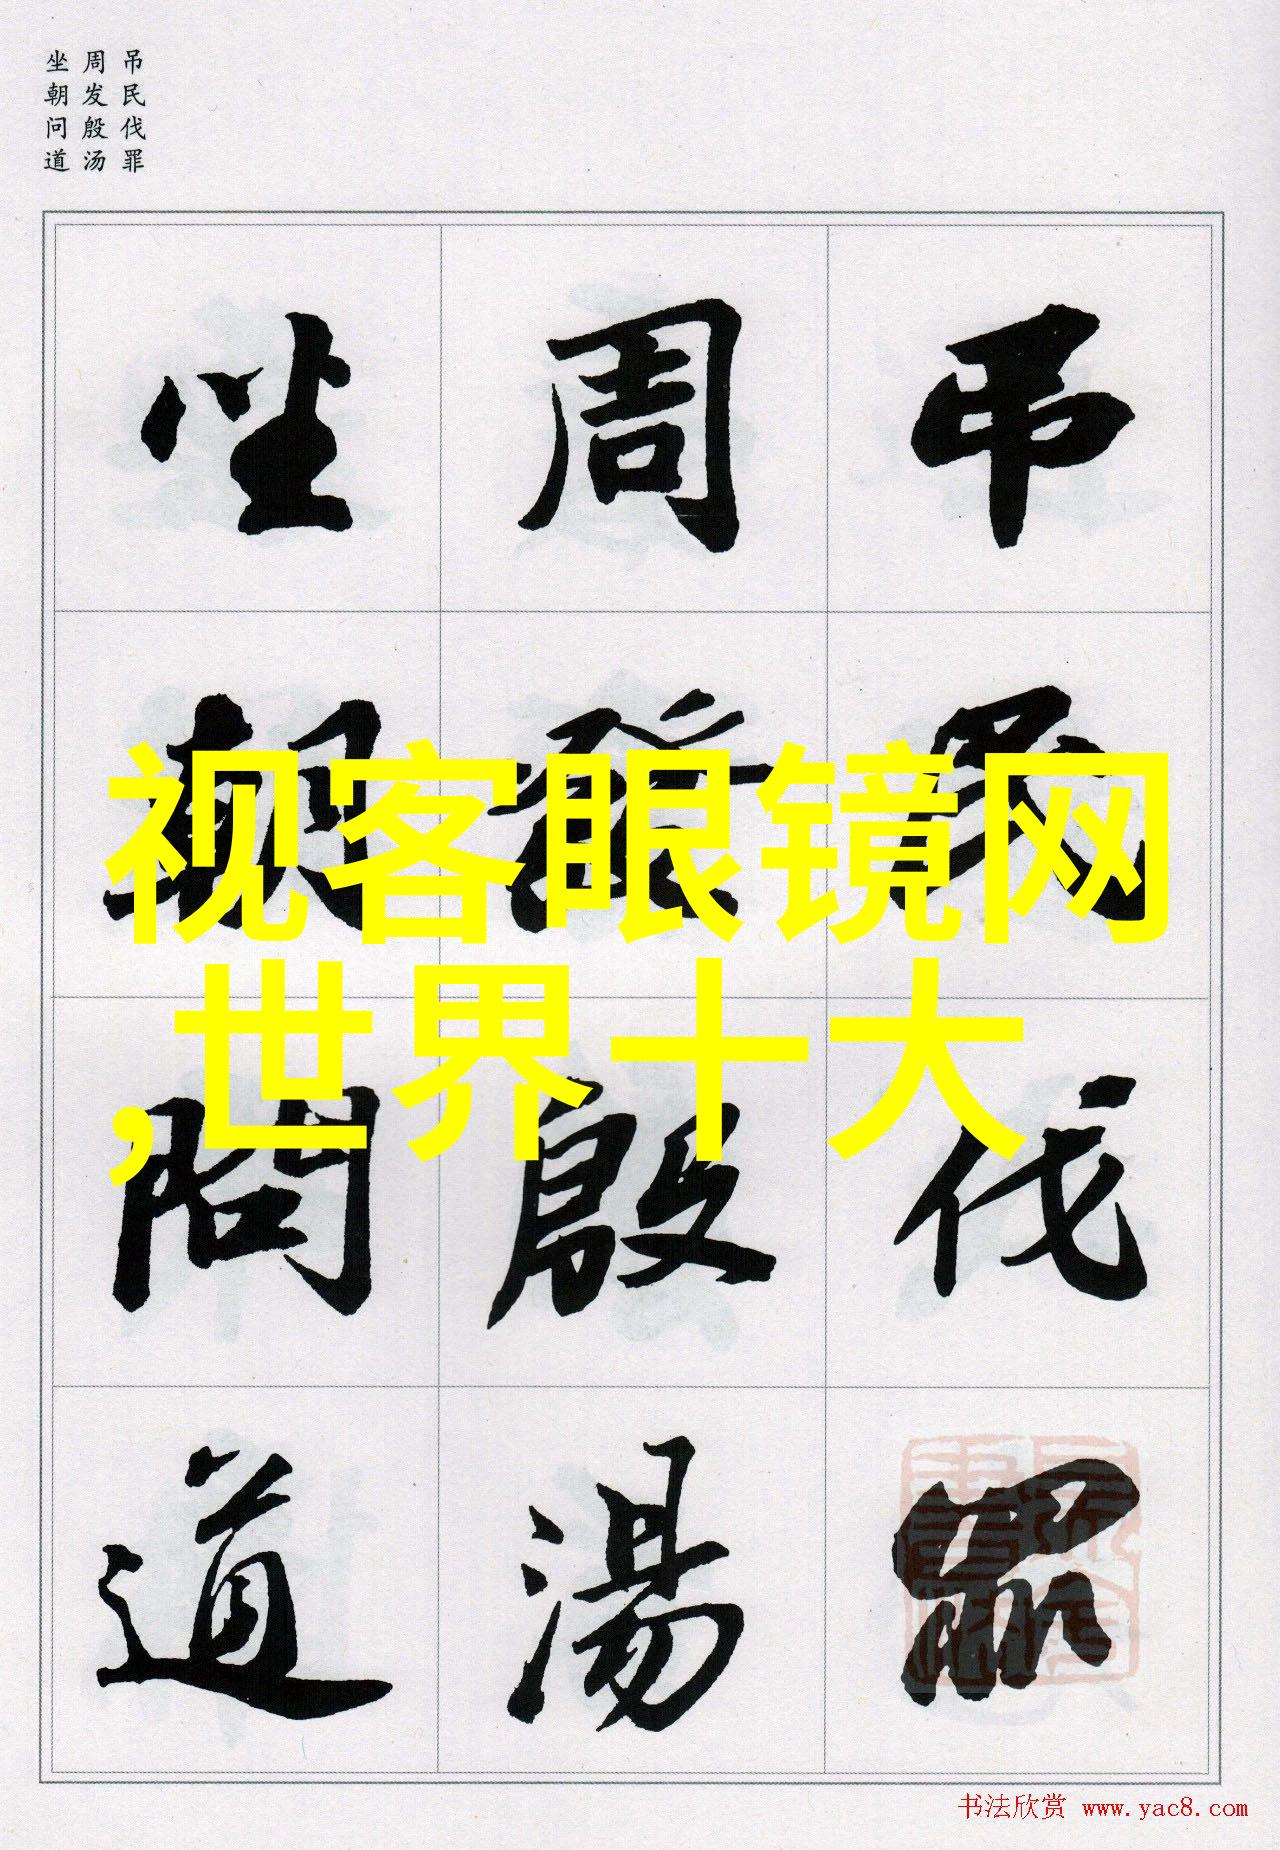 吊民伐罪
周发殷汤
坐朝问道
吊民伐罪
周發殷湯
坐朝問道
视客眼镜网
,世界十大
书法欣赏 www.yac8.com